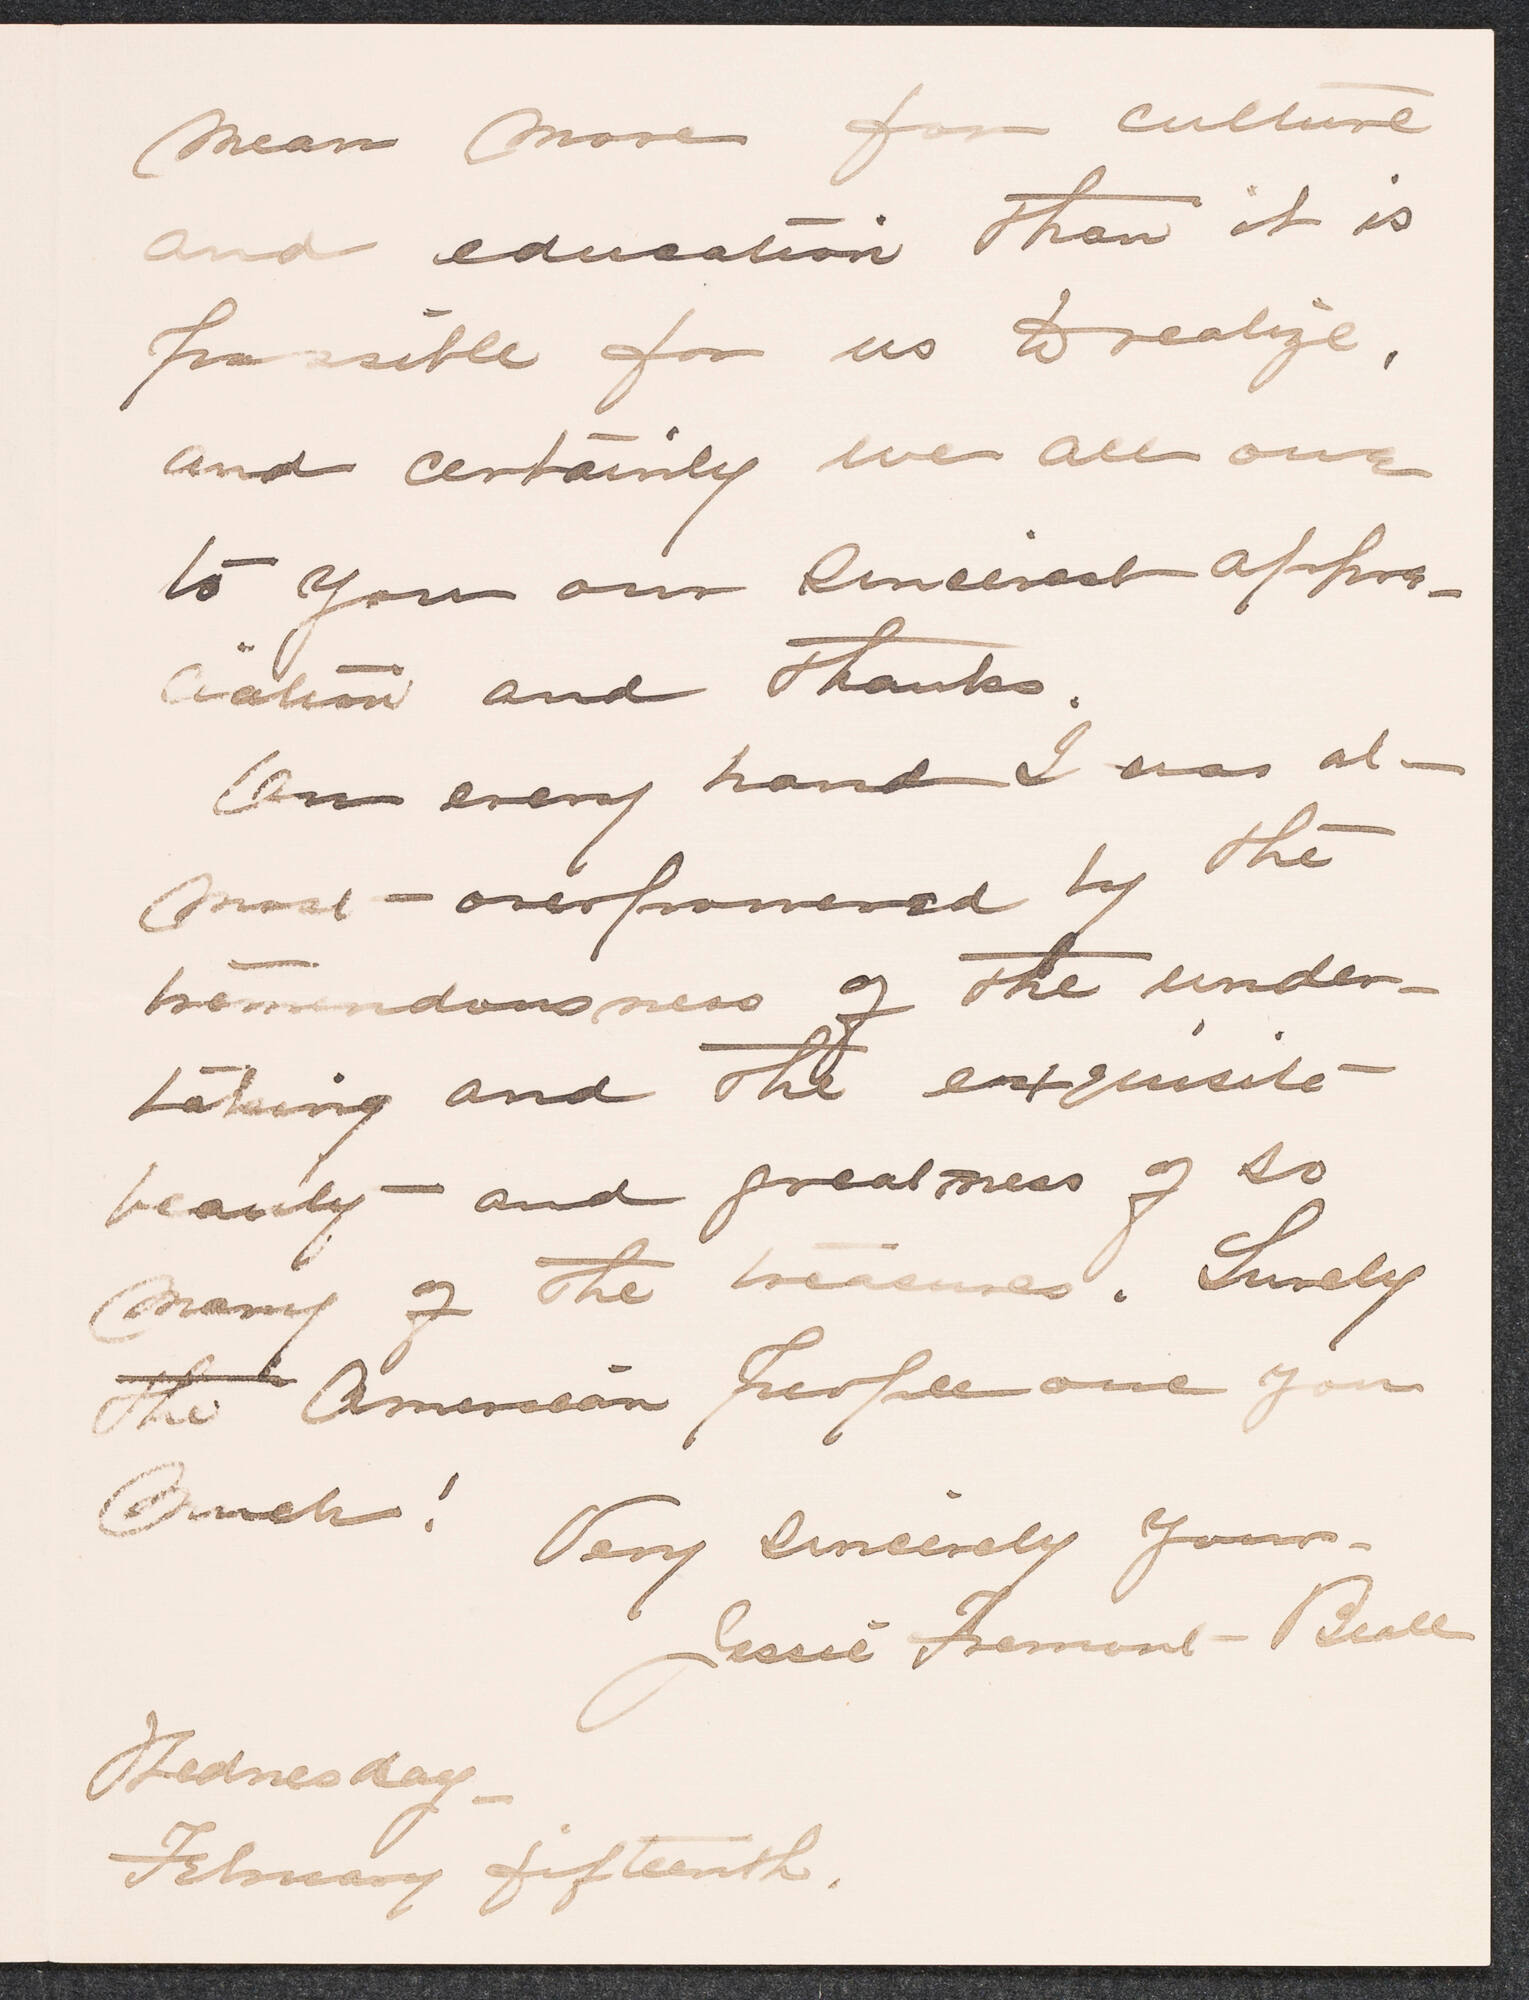 mean more for culture
and education than it is
possible for us to realize,
and certainly we all owe
to you our sincerest appre-
ciation and thanks.
On every hand I was al-
most - overpowered by the
tremendousness of the under-
taking and the exquisite
beauty - and greatness of so
many of the treasures. Surely
the American people owe you
much!
Very sincerely yours -
Jessie Fremont - Beale
Wednesday -
February fifteenth.